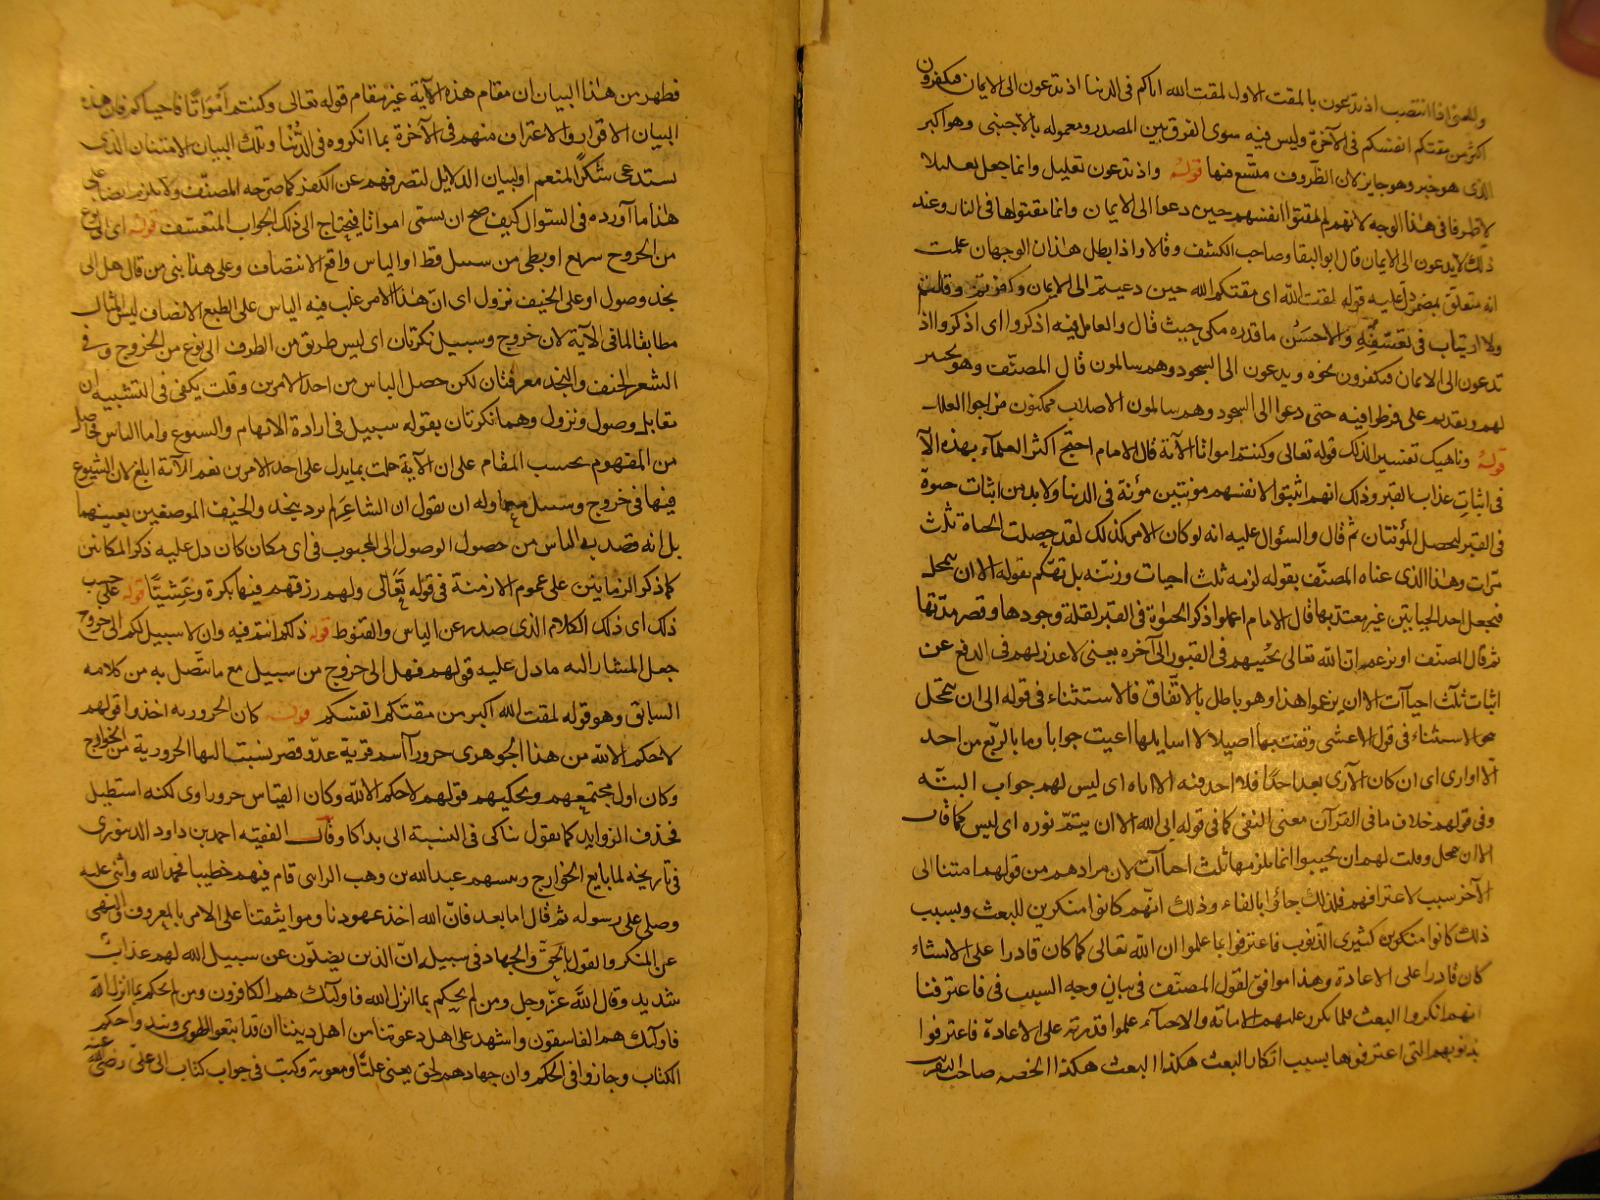 وللعنى اذا انتصب اذ تدعون بالمقت الاول لمقت الله اياكم فى الدنيا اذ تدعون الى الايمان فتكفرون
اكبر من مقتكم انفسكم فى الآخرة وليس فيه سوى الفرق بين المصدر ومعموله بالاجنبى وهو اكبر
الذى هو خبر وهو جايز لان الظروف متسع فيها قوله واذ تدعون تعليل وانما جعل تعليلا
لا ظرفا فى هذا الوجه لانهم لم يمقتوا انفسهم حين دعوا الى الايمان وانما مقتوها فى النار وعند
ذلك لا يدعون الى الايمان قال ابو البقا وصاحب الكشف وقالا واذا بطل هذان الوجهان علمت
انه متعلق بمضمر دل عليه قوله لمقت الله اى مقتكم الله حين دعيتم الى الايمان وكفرتم وقلتم
ولا ارتياب فى تعسفه والاحسن ما قدره مكى حيث قال والعامل فيه اذكروا اى اذكروا اذ
تدعون الى الايمان فتكفرون نحوه ويدعون الى السجود وهم سالمون قال المصنف وهو تحسر
لهم وتنديم على ما فرطوا فيه حتى دعوا الى السجود وهم سالمون الاصلاب ممكنون مزاحوا العلل
قوله وناهيك تفسير الذلك قوله تعالى وكنتم امواتا الآية قال الامام احتج اكثر العلماء بهذه الآ
فى اثبات عذاب القبر وذلك انهم اثبتوا لانفسهم موتتين موتة فى الدنيا ولا بد من اثبات حيوة
فى القبر ليحصل الموتتان ثم قال والسؤال عليه انه لو كان الامر كذلك لقد حصلت الحياة ثلث
مرات وهذا الذى عناه المصنف بقوله لزمه ثلث احيات وزيفه بل تهكم بقوله الا ان يتمحل
فيجعل احد الحياتين غير معتد بها قال الامام اهملوا ذكر الحيوة فى القبر لقلة وجودها وقصر مدتها
ثم قال المصنف او يزعم ان الله تعالى يحييهم فى القبور الى آخره يعنى لا عذر لهم فى الدفع عن
اثبات ثلث احياآت الا ان يزعموا هذا وهو باطل بالاتفاق فالاستثناء فى قوله الى ان يتمحل
نحو الاستثناء فى قول الاعشى وقفت بها اصيلا لا اسايلها اعيت جوابا وما بالربع من احد
الا اوارى اى ان كان الآرى يعد احدا فلا احد فيه الا اياه اى ليس لهم جواب البتة
وفى قولهم خلاف ما فى القرآن معنى النفى كما فى قوله ابى الله الا ان يتم نوره اى ليس كما قال
الا ان تمحل وقلت لهم ان يجيبوا انما يلزمها ثلث احياآت لان مرادهم من قولهم امتنا الى
الآخر سبب لاعترافهم فلذلك جائ بالفاء وذلك انهم كانوا منكرين للبعث وبسبب
ذلك كانوا منكرين كثيرى الذنوب فاعترفوا بما علموا ان الله تعالى كما كان قادرا على الانشاء
كان قادرا على الاعادة وهذا موافق لقول المصنف فى بيان وجه السبب فى فاعترفنا
انهم انكروا البعث فلما تكرر عليهم الاماتة والاحياء علموا قدرته على الاعادة فاعترفوا
بذنوبهم التى اعترفوها بسبب انكار البعث هكذا البعث هكذا لخصه صاحب التقريب
فظهر من هذا البيان ان مقام هذه الآية غير مقام قوله تعالى وكنتم امواتا فاحياكم فان هذه
البيان الاقرار والاعتراف منهم فى الآخرة بما انكروه فى الدنيا وتلك البيان الامتنان الذى
يستدعى شكر المنعم او لبيان الدلايل لتصرفهم عن الكفر كما صرحه المصنف ولا يلزم ايضا على
هذا ما آورده فى السؤال كيف صح ان يسمى امواتا فيحتاج الى ذلك الجواب المتعسف قوله اى الى نوع
من الخروح سريع او بطى من سبيل قط او الياس واقع الانتصاف وعلى هذا بنى من قال هل الى
نجد وصول او على الخيف نزول اى ان هذا الامر غلب فيه الياس على الطبع الانصاف ليس المثال
مطابقا لما فى الآية لان خروج وسبيل نكرتان اى ليس طريق من الطرق الى نوع من الخروج وفى
الشعر الخيف والنجد معرفتان لكن حصل الياس من احد الامرين وقلت يكفى فى التشبيه ان
تقابل وصول ونزول وهما نكرتان بقوله سبيل فى ارادة الابهام والشيوع واما الياس فحاصل
من المفهوم بحسب المقام على ان الآية حلت بما يدل على احد الامرين نعم الآية ابلغ لان الشيوع
فيها فى خروج وسبيل معا وله ان يقول ان الشاعر لم يرد بنجد والخيف الموصفين بعينهما
بل انه قصد به الياس من حصول الوصول الى المحبوب فى اى مكان كان دل عليه ذكر المكانين
كما ذكر الزمانين على عموم الازمنة فى قوله تعالى ولهم رزقهم فيها بكرة وعشيا قوله على حسب
ذلك اى ذلك الكلام الذى صدر عن الياس والقنوط قوله ذلكم انتم فيه وان لا سبيل لكم الى خروج
جعل المشار اليه ما دل عليه قولهم فهل الى خروج من سبيل مع ما يتصل به من كلامه
السابق وهو قوله لمقت الله اكبر من مقتكم انفسكم قوله كان الحرورية اخذوا قولهم
لا حكم الا لله من هذا الجوهرى حرورآ اسم قرية عد وقصر نسبت اليها الحرورية من الخوارج
وكان اول مجتمعهم وتحكيمهم قولهم لا حكم الا لله وكان القياس حروراوى لكنه استطيل
فحذف الزوايد كما يقول بناكى فى النسبة الى بداكا وقال الفقيه احمد بن داود الدينورى
فى تاريخه لما بايع الخوارج رئيسهم عبد الله بن وهب الراسى قام فيهم خطيبا فحمد الله واثنى عليه
وصلى على رسوله ثم قال اما بعد فان الله اخذ عهودنا وموايثقنا على الامر بالمعروف والنهى
عن المنكر والقول بالحق والجهاد فى سبيله ان الذين يضلون عن سبيل الله لهم عذاب
شديد وقال الله عز وجل ومن لم يحكم بما انزل الله فاولئك هم الكافرون ومن لم يحكم بما انزل الله
فاولئك هم الفاسقون واشهد على اهل دعوتنا من اهل ديننا ان قد اتبعوا الهوى ونبذوا حكم
الكتاب وجاروا فى الحكم وان جهادهم لحق يعنى عليا ومعوية وكتب فى جواب كتاب الى على رضى الله عنه